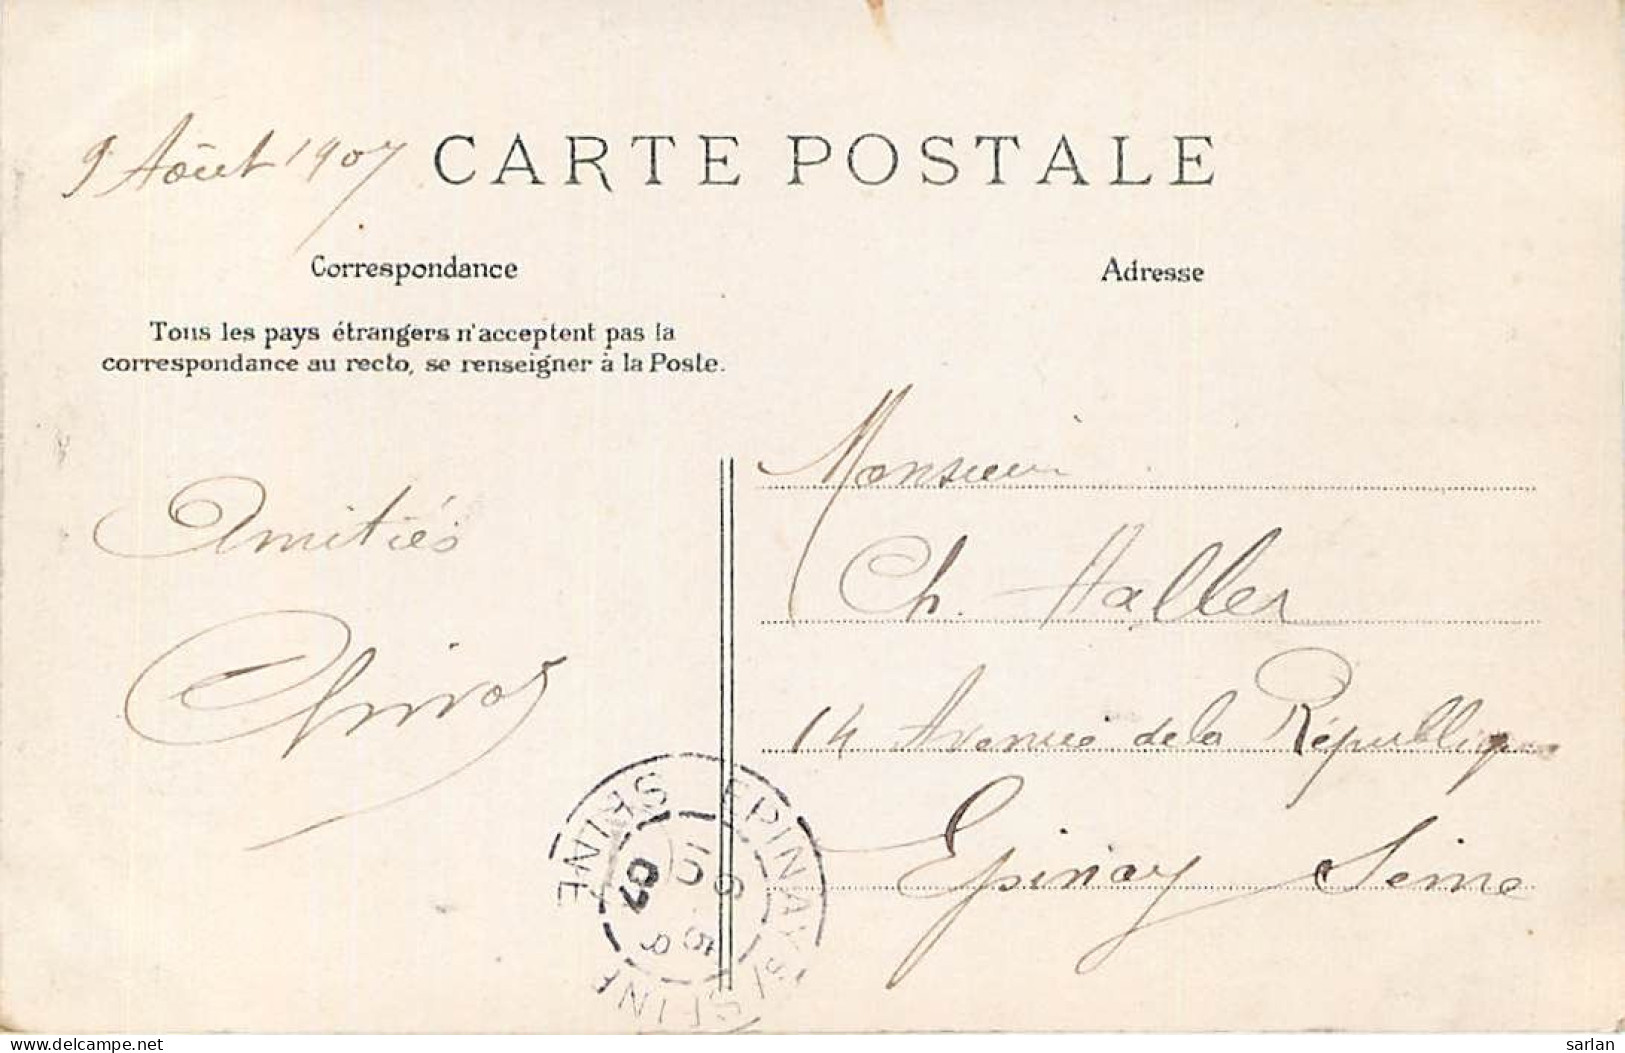 9 Août 1907
CARTE POSTALE
Correspondance
Adresse
Tous les pays étrangers n'acceptent pas la
correspondance au recto, se renseigner à la Poste.
Amitiés
Monsieur
Ch. Haller
14 Avenue de la République
Epinay Seine
EPINAY S/SEINE
SEINE
07
delcampe.net
sarlan